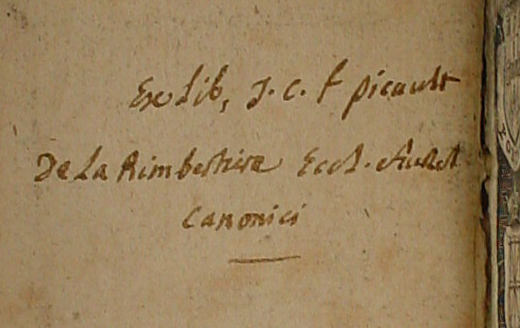 Ex Lib, J. C. f picault
De La Rimbertiere Eccl. Aurel
Canonici